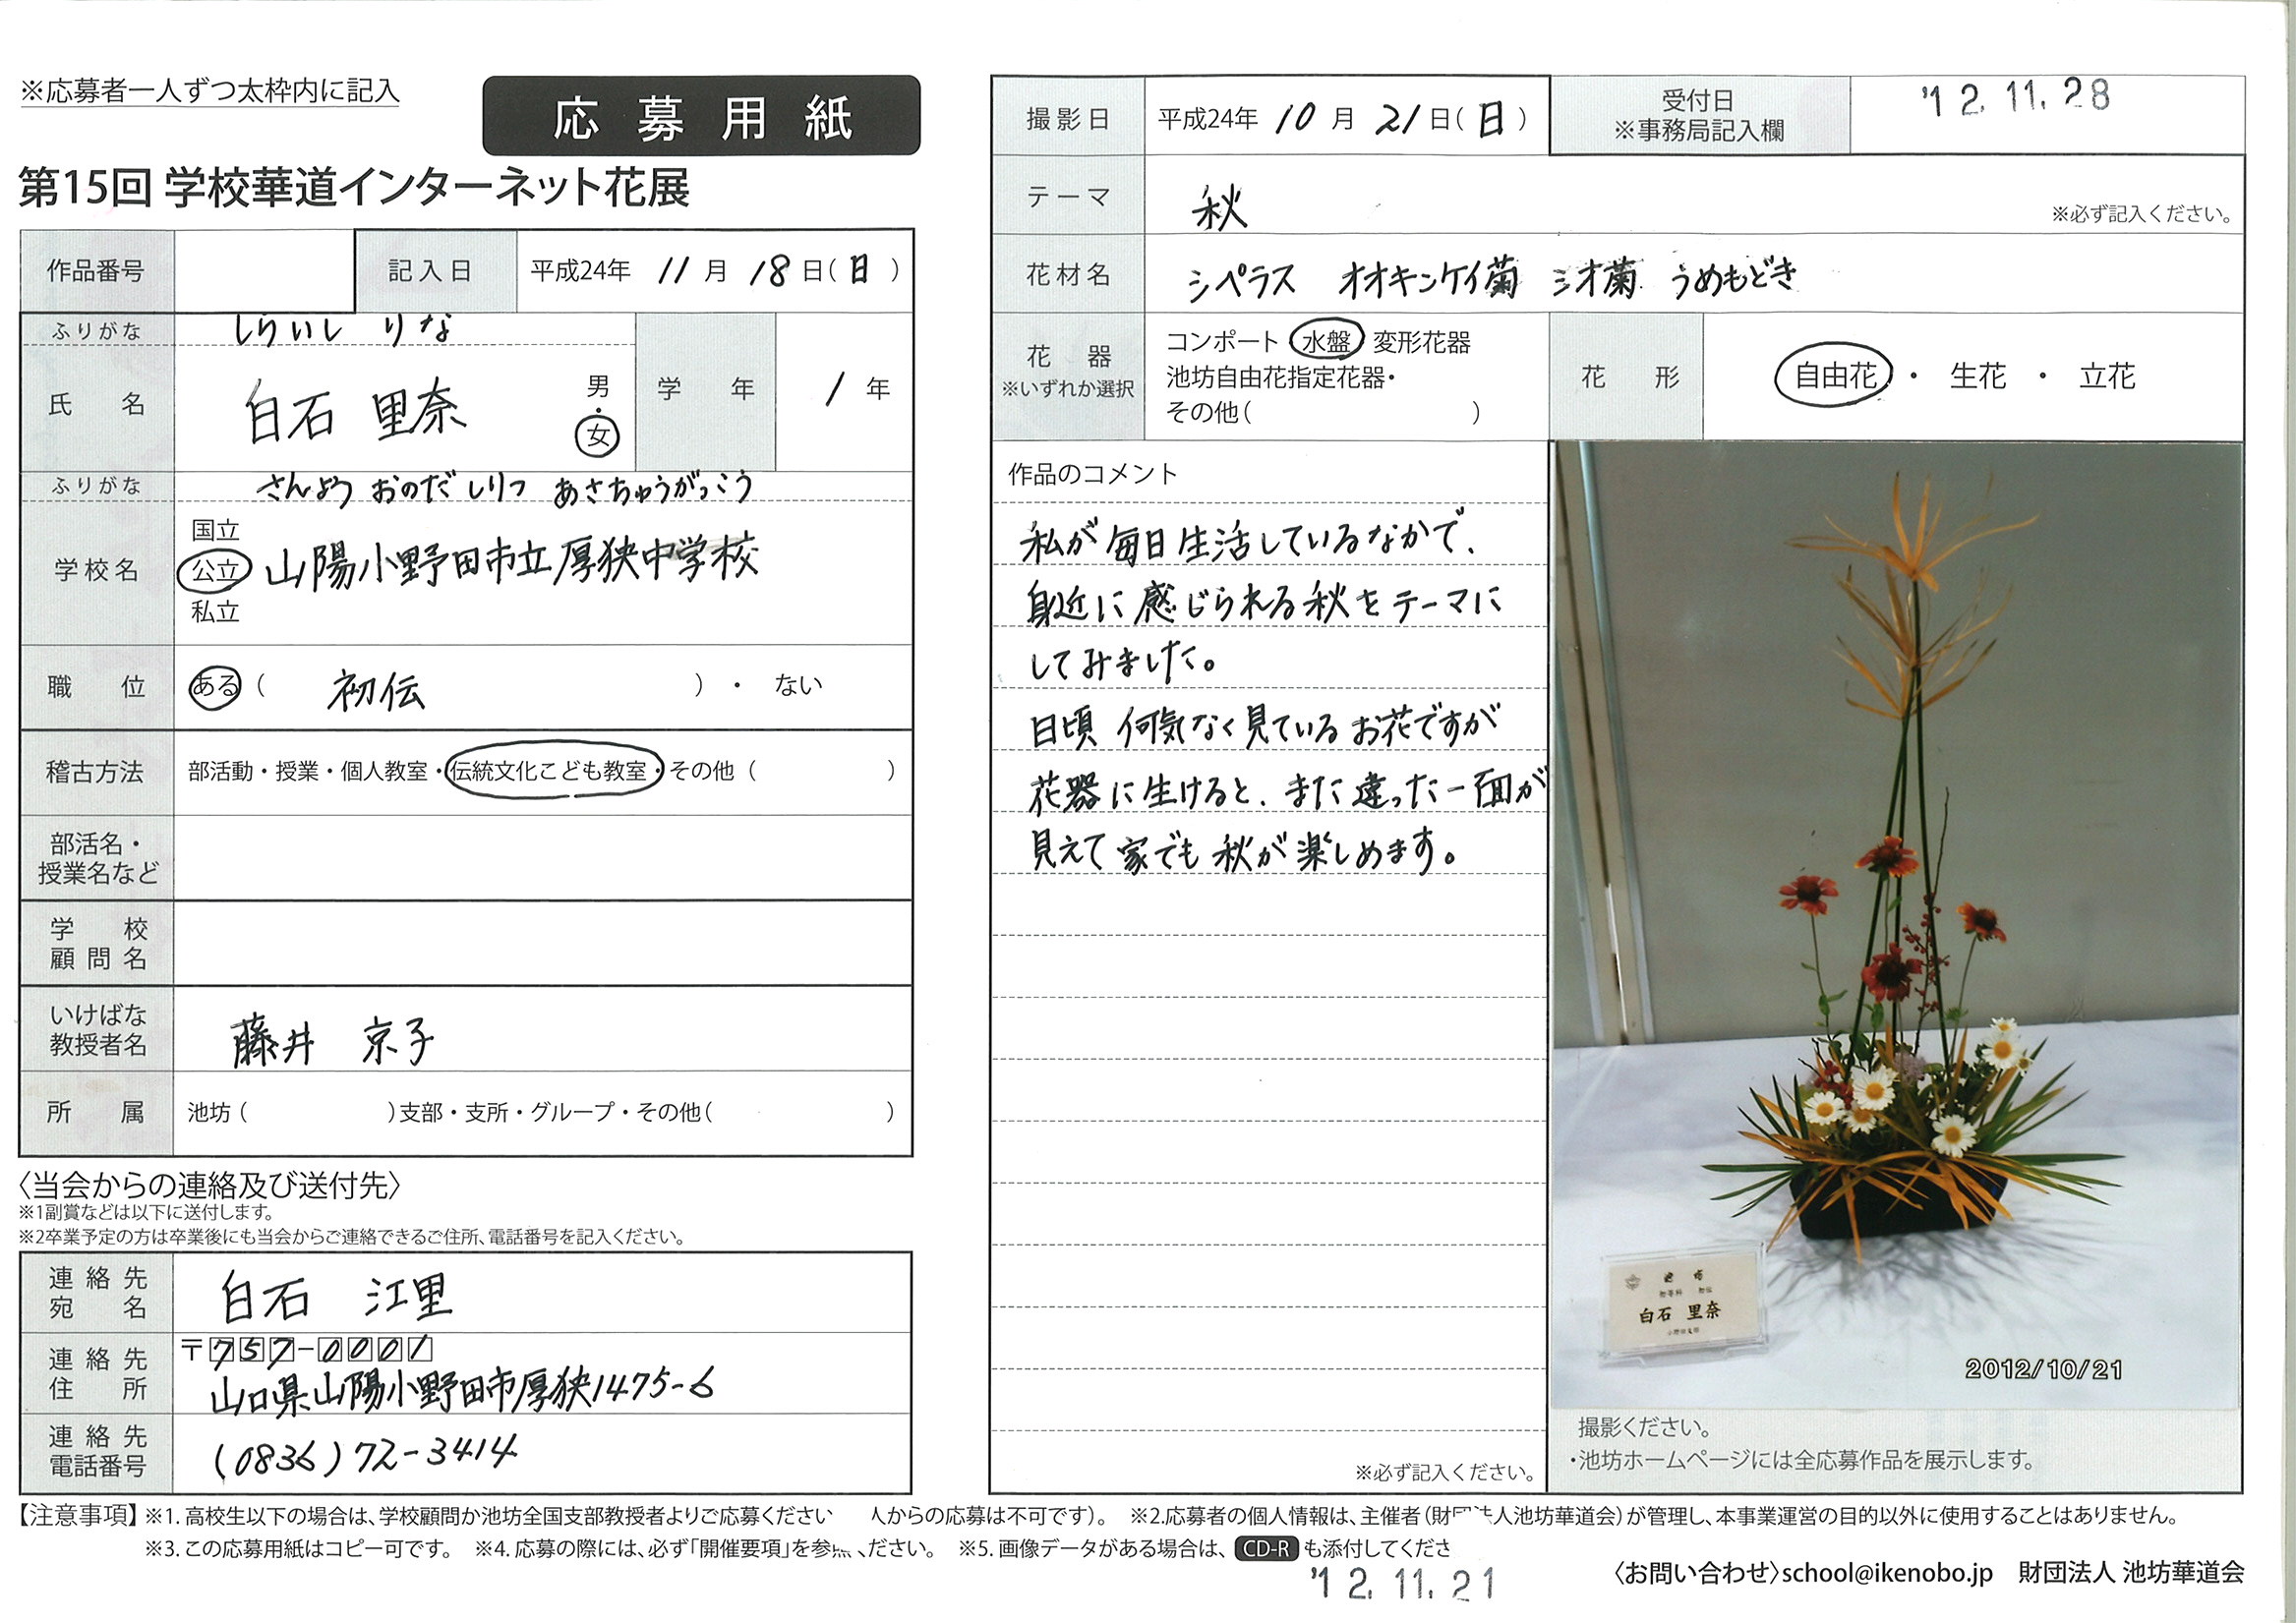 ※応募者一人ずつ太枠内に記入
応募用紙
第15回 学校華道インターネット花展
作品番号
記入日 平成24年 11月 18日(日)
ふりがな しらいし りな
氏名 白石 里奈 男・女
学年 1年
ふりがな さんようおのだしりつ あさちゅうがっこう
学校名 国立 公立 私立 山陽小野田市立厚狭中学校
職位 ある( 初伝 )・ ない
稽古方法 部活動・授業・個人教室・伝統文化こども教室・その他( )
部活名・
授業名など
学校
顧問名
いけばな
教授者名 藤井 京子
所属 池坊( )支部・支所・グループ・その他( )
〈当会からの連絡及び送付先〉
※1副賞などは以下に送付します。
※2卒業予定の方は卒業後にも当会からご連絡できるご住所、電話番号を記入ください。
連絡先
宛名 白石 江里
連絡先
住所 〒757-0001
山口県山陽小野田市厚狭1475-6
連絡先
電話番号 (0836)72-3414
撮影日 平成24年 10月 21日(日)
受付日
※事務局記入欄 '12.11.28
テーマ 秋 ※必ず記入ください。
花材名 シペラス オオキンケイ菊 シオ菊 うめもどき
花器
※いずれか選択
コンポート 水盤 変形花器
池坊自由花指定花器・
その他( )
花形 自由花 ・ 生花 ・ 立花
作品のコメント
私が毎日生活しているなかで、
身近に感じられる秋をテーマに
してみました。
日頃何気なく見ているお花ですが
花器に生けると、また違った一面が
見えて家でも秋が楽しめます。
※必ず記入ください。
池坊
白石 里奈
2012/10/21
撮影ください。
・池坊ホームページには全応募作品を展示します。
【注意事項】※1. 高校生以下の場合は、学校顧問か池坊全国支部教授者よりご応募ください 人からの応募は不可です)。 ※2.応募者の個人情報は、主催者(財団法人池坊華道会)が管理し、本事業運営の目的以外に使用することはありません。
※3. この応募用紙はコピー可です。 ※4. 応募の際には、必ず「開催要項」を参照ください。 ※5. 画像データがある場合は、CD-Rも添付してくださ
'12.11.21
〈お問い合わせ〉school@ikenobo.jp 財団法人 池坊華道会